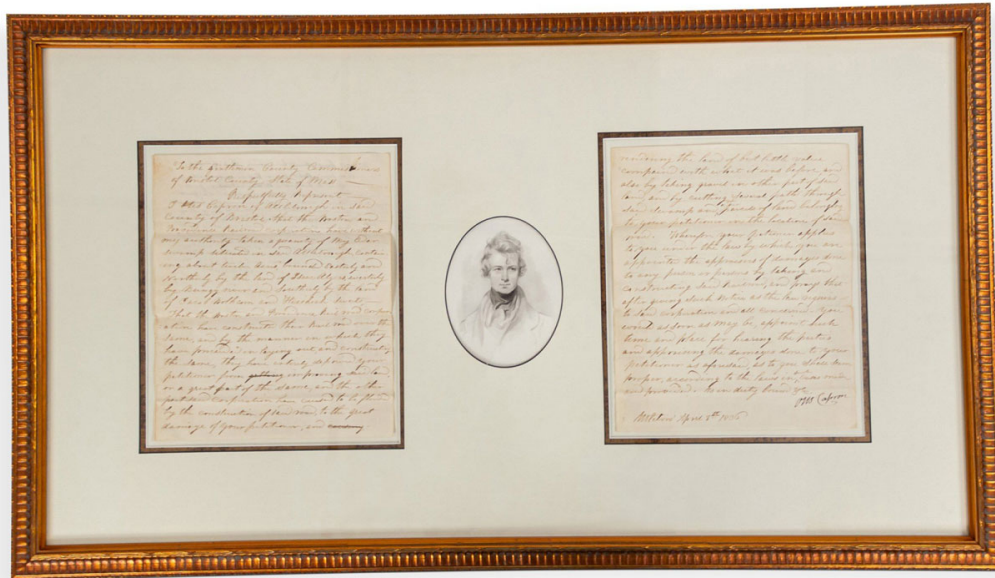 To the Honorable County Commissioners
of Bristol County, State of Mass
Respectfully represent
I Otis Capron of Attleborough in said
County of Bristol that the Boston and
Providence Railroad corporation have without
my authority taken a quantity of my Cedar
swamp situated in said Attleborough contain
ing about acres bound easterly and
by the land of westerly
by river and southerly by the land
of and
That the Boston and Providence Rail road corpor
ation have constructed their Rail road over the
same, and by the manner in which they
have proceeded in laying out and constructing
the same, they have entirely your
petitioner from getting improving the land
or a great part of the same, and the other
part said corporation have caused to be
by the construction of said road to the great
damage of your petitioner, and
rendering the land of but little value
compared with what it was before, and
also by taking gravel on other part of said
land, and by cutting a path through
said swamp and of land belonging
to your petitioner in the location of said
road. Wherefore your petitioner applies
to you under the law by which you are
the of damages done
to any person or persons by taking and
constructing said railroad, and prays that
after giving such notice as the law requires
to said corporation and all concerned, you
would as soon as may be, appoint such
time and place for hearing the parties
and the damages done to your
petitioner as aforesaid, as to you shall
proper, according to the laws in such case made
and provided. As in duty bound &c
Otis Capron
April 5th 1836